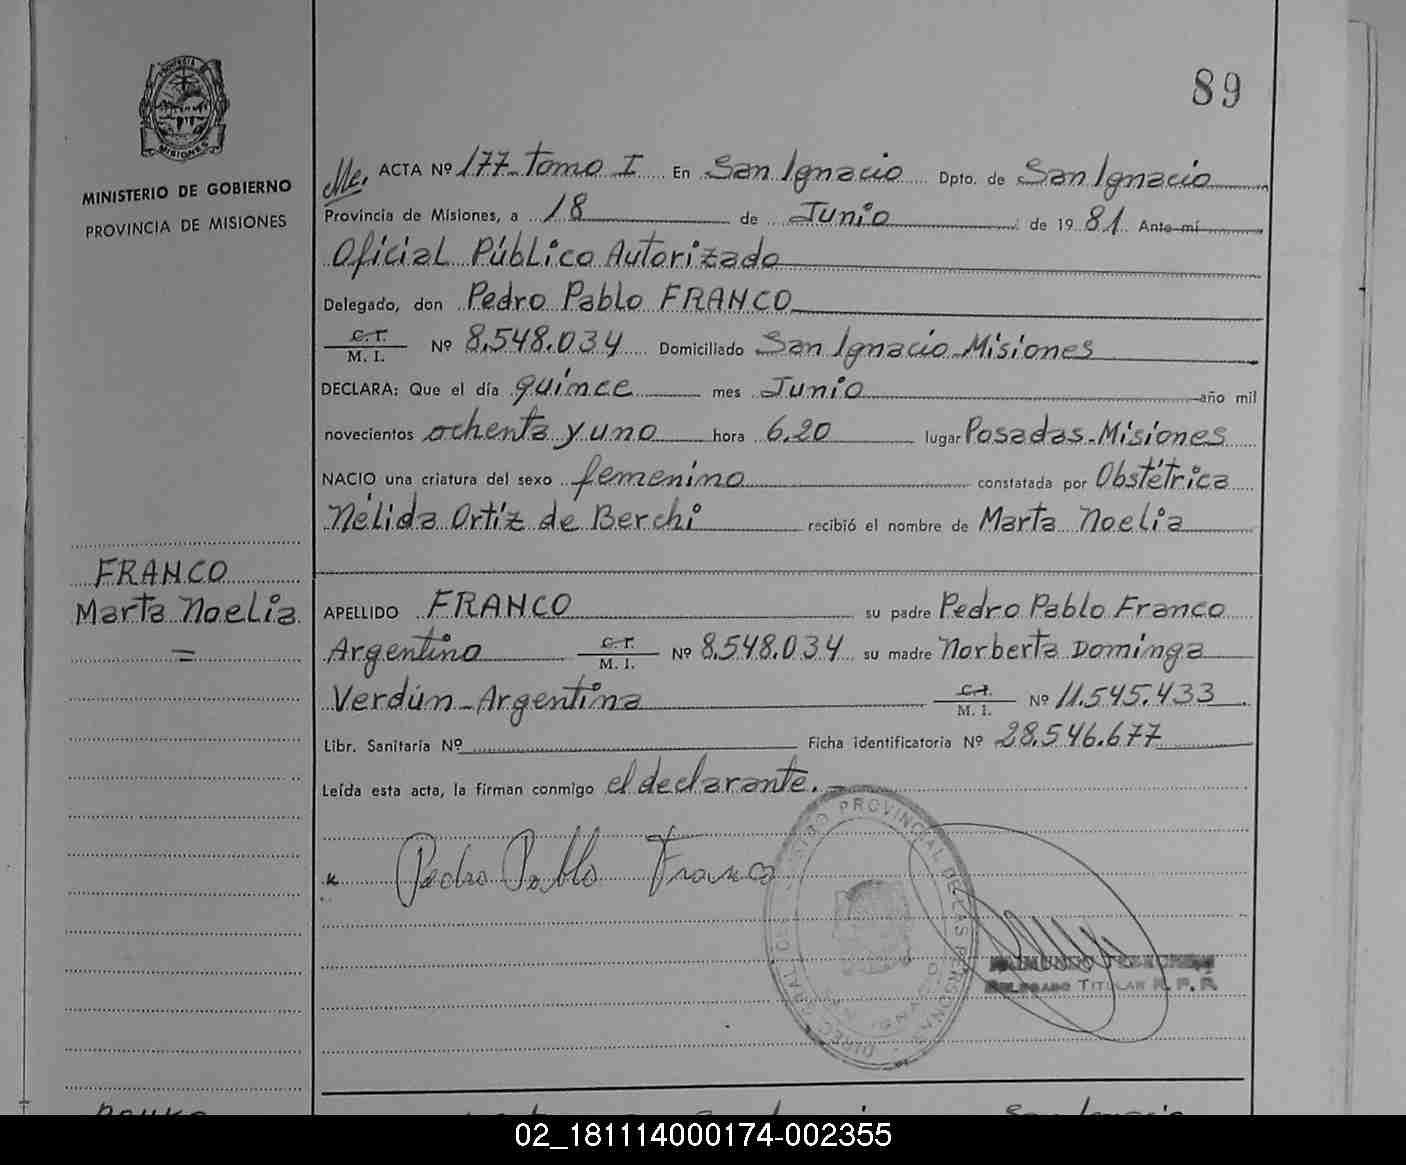 89
MINISTERIO DE GOBIERNO
PROVINCIA DE MISIONES
MISIONES
ACTA Nº 177-Tomo I En San Ignacio Dpto. de San Ignacio
Provincia de Misiones, a 18 de Junio de 1981 Ante mí
Oficial Público Autorizado
Delegado, don Pedro Pablo FRANCO
C. I.
M. I. Nº 8.548.034 Domiciliado San Ignacio-Misiones
DECLARA: Que el día quince mes Junio año mil
novecientos ochenta y uno hora 6.20 lugar Posadas-Misiones
NACIO una criatura del sexo femenino constatada por Obstétrica
Nélida Ortíz de Berchi recibió el nombre de Marta Noelia
FRANCO
Marta Noelia
=
APELLIDO FRANCO su padre Pedro Pablo Franco
Argentino C. I. M. I. Nº 8.548.034 su madre Norberta Dominga
Verdún-Argentina C. I. M. I. Nº 11.545.433
Libr. Sanitaria Nº Ficha identificatoria Nº 28.546.677
Leída esta acta, la firman conmigo el declarante.-
Pedro Pablo Franco
PROVINCIAL DE LAS PERSONAS
SAN IGNACIO
DELEGADO TITULAR R. P. P.
02_181114000174-002355